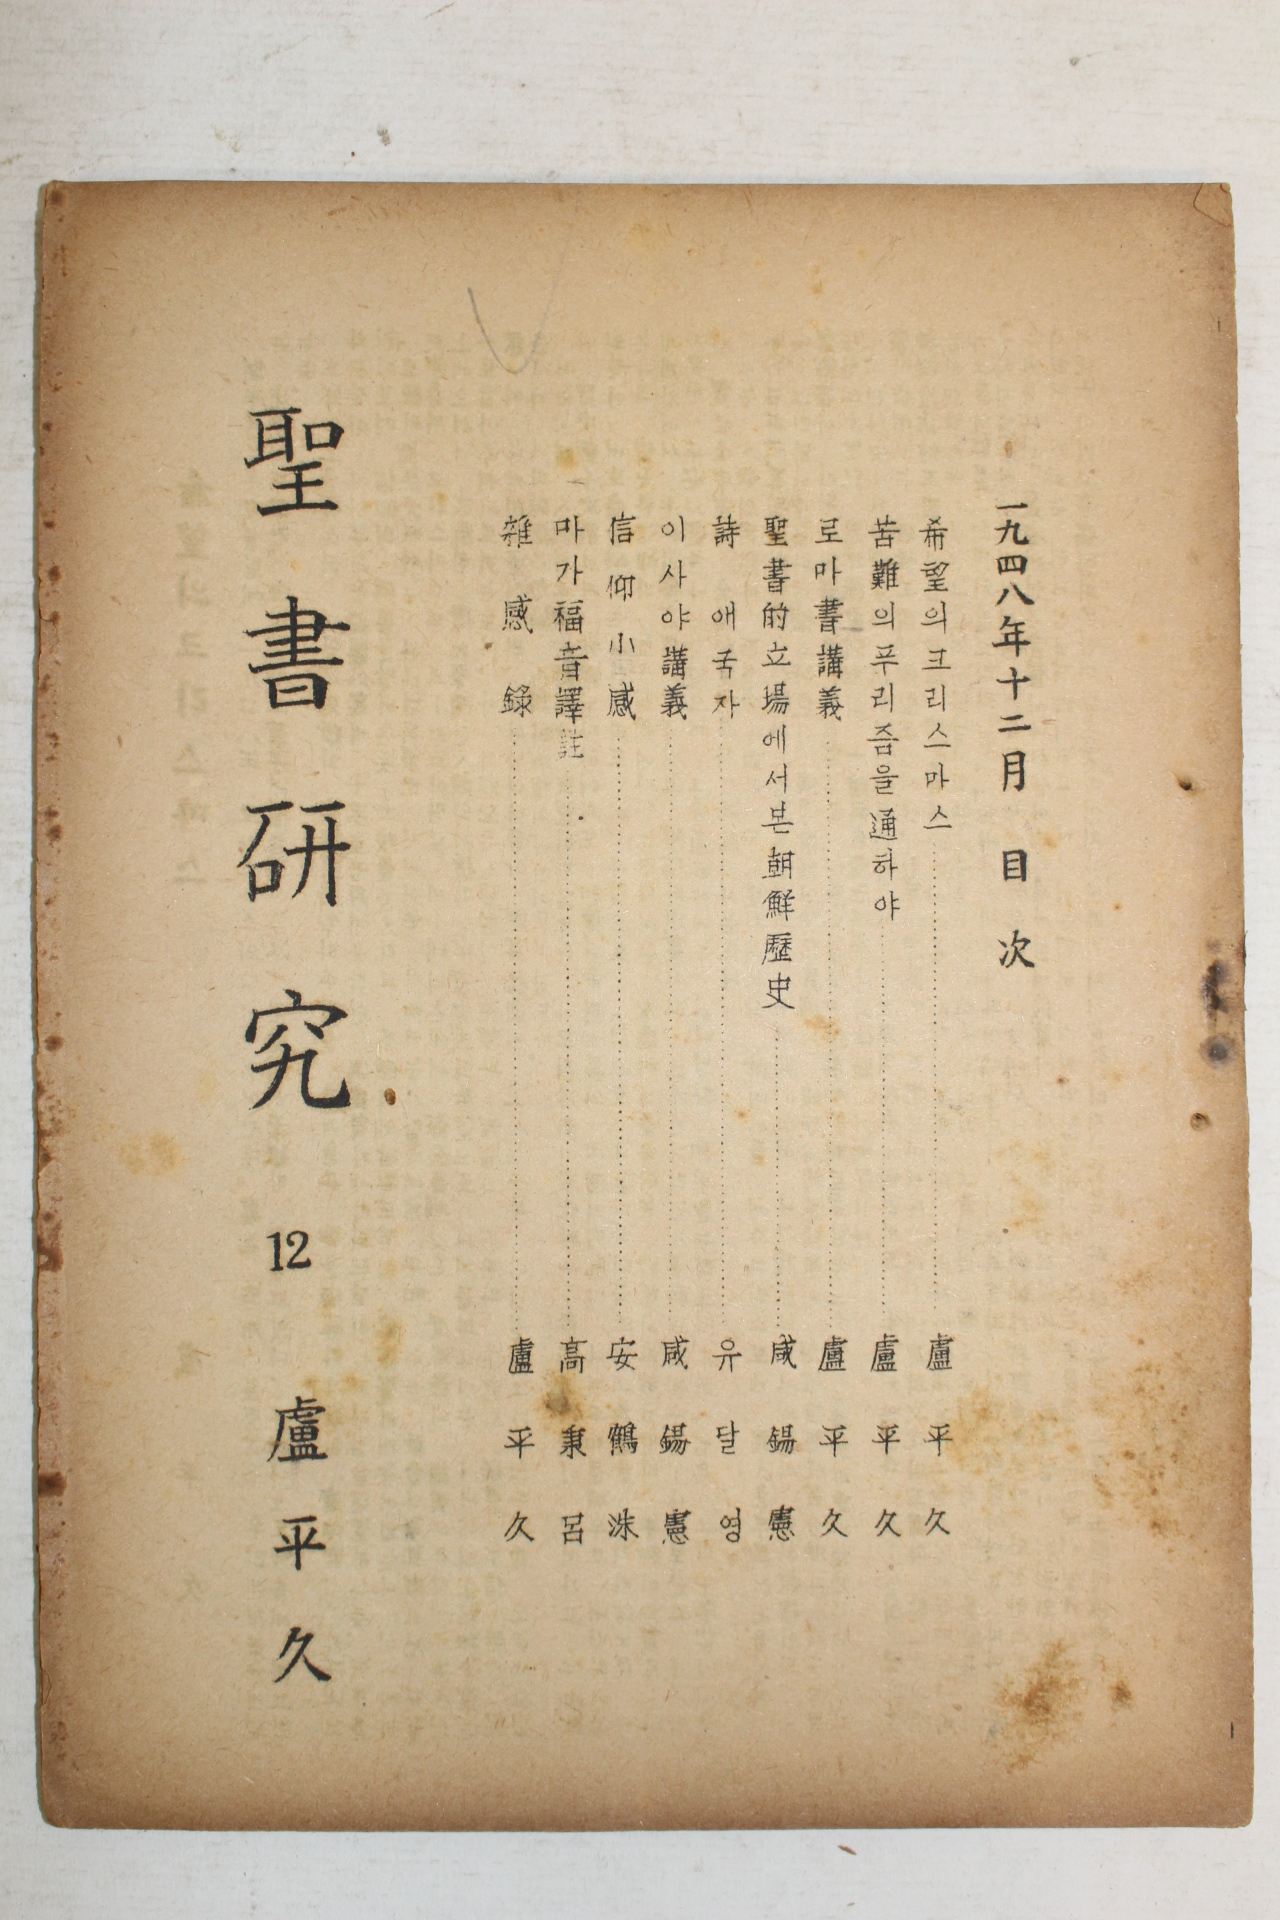 一九四八年十二月 目次
希望의크리스마스 盧平久
苦難의푸리즘을通하야 盧平久
로마書講義 盧平久
聖書的立場에서본朝鮮歷史 咸錫憲
詩 애국자 유달영
이사야講義 咸錫憲
信仰小感 安鶴洙
마가福音譯註 高秉呂
雜感錄 盧平久
聖書硏究 12 盧平久